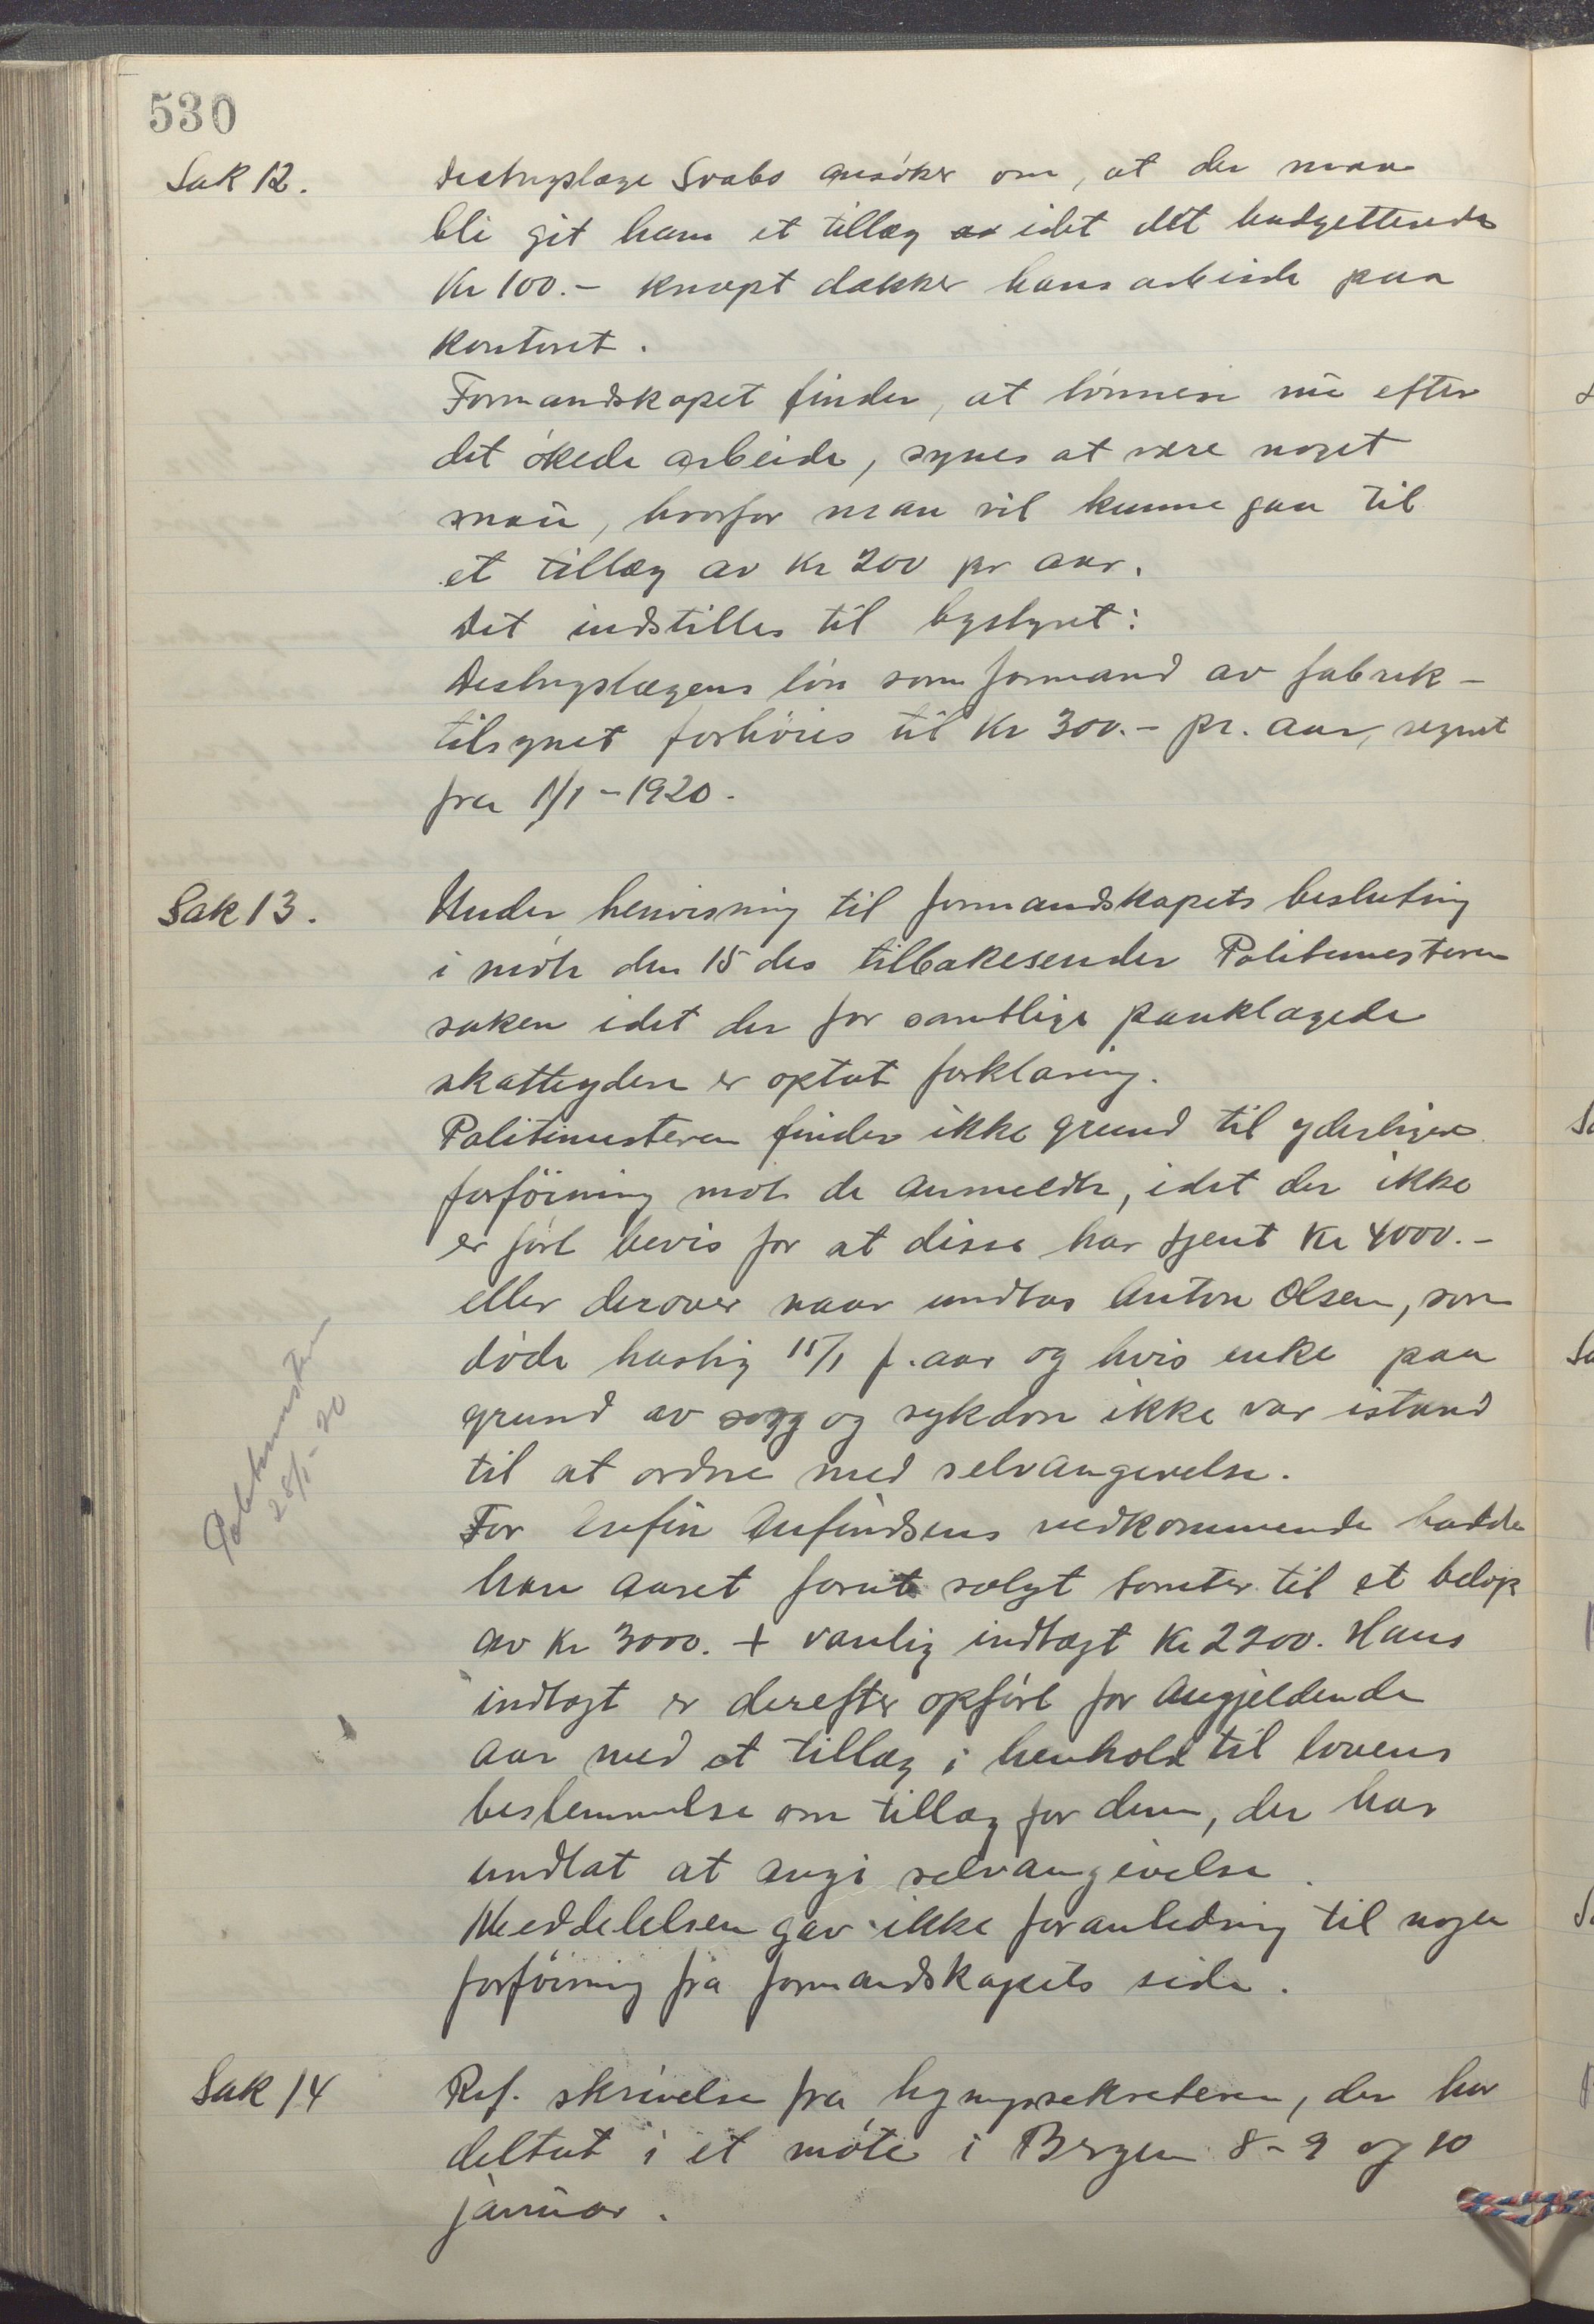 530
Sak 12.
Distriktslæge Svabo ansöker om, at der maa
bli git ham et tillæg idet det budgetterede
Kr 100.- knapt dækker hans arbeide paa
kontoret.
Formandskapet finder, at lönnen nu efter
det ökede arbeide, synes at være noget
små, hvorfor man vil kunne gaa til
et tillæg av Kr 200 pr aar.
Det indstilles til bystyret:
Distriktslægens lön som formand av fabrik-
tilsynet forhöies til Kr 300.- pr. aar, regnet
fra 1/1-1920.
Sak 13.
Under henvisning til formandskapets beslutning
i möte den 15 ds tilbakesender Politimesteren
saken idet der for samtlige paaklagede
skatteydere er optat forklaring.
Politimesteren finder ikke grund til yderligere
forföining mot de anmeldte, idet der ikke
er fört bevis for at disse har tjent Kr 4000.-
eller derover naar undtas Anton Olsen, som
döde hastig 15/1 f. aar og hvis enke paa
grund av sorg og sykdom ikke var istand
til at ordne med selvangivelse.
For Anfin Anfindsens vedkommende hadde
han aaret forut solgt tomter til et belöp
av Kr 3000. + vanlig indtægt Kr 2200. Hans
indtægt er derefter opfört for angjeldende
aar med et tillæg i henhold til lovens
bestemmelse om tillæg for dem, der har
undlat at angi selvangivelse.
Meddelelsen gav ikke foranledning til nogen
forföining fra formandskapets side.
Politimesteren
28/1-20
Sak 14
Ref. skrivelse fra hygnyssekretæren, der har
deltat i et möte i Bergen 8-9 og 10
januar.